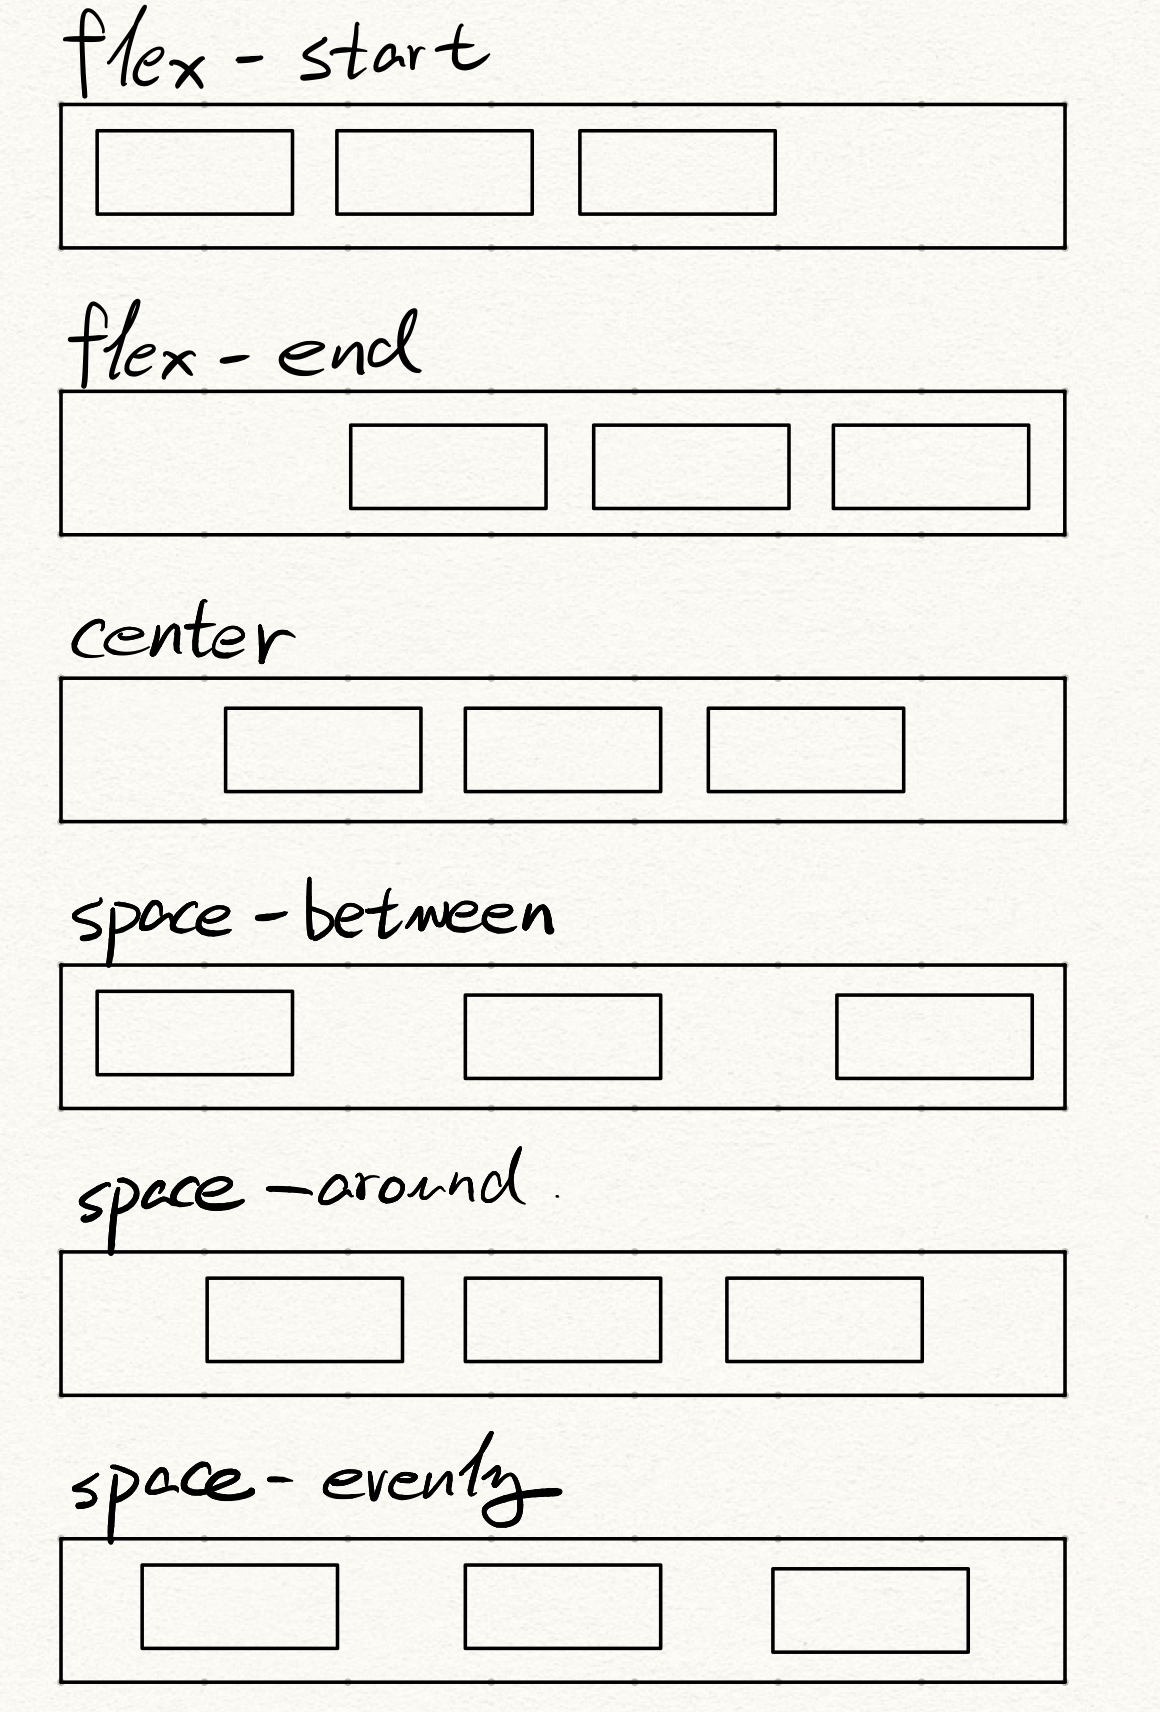 flex - start
flex - end
center
space - between
space - around
space - evenly